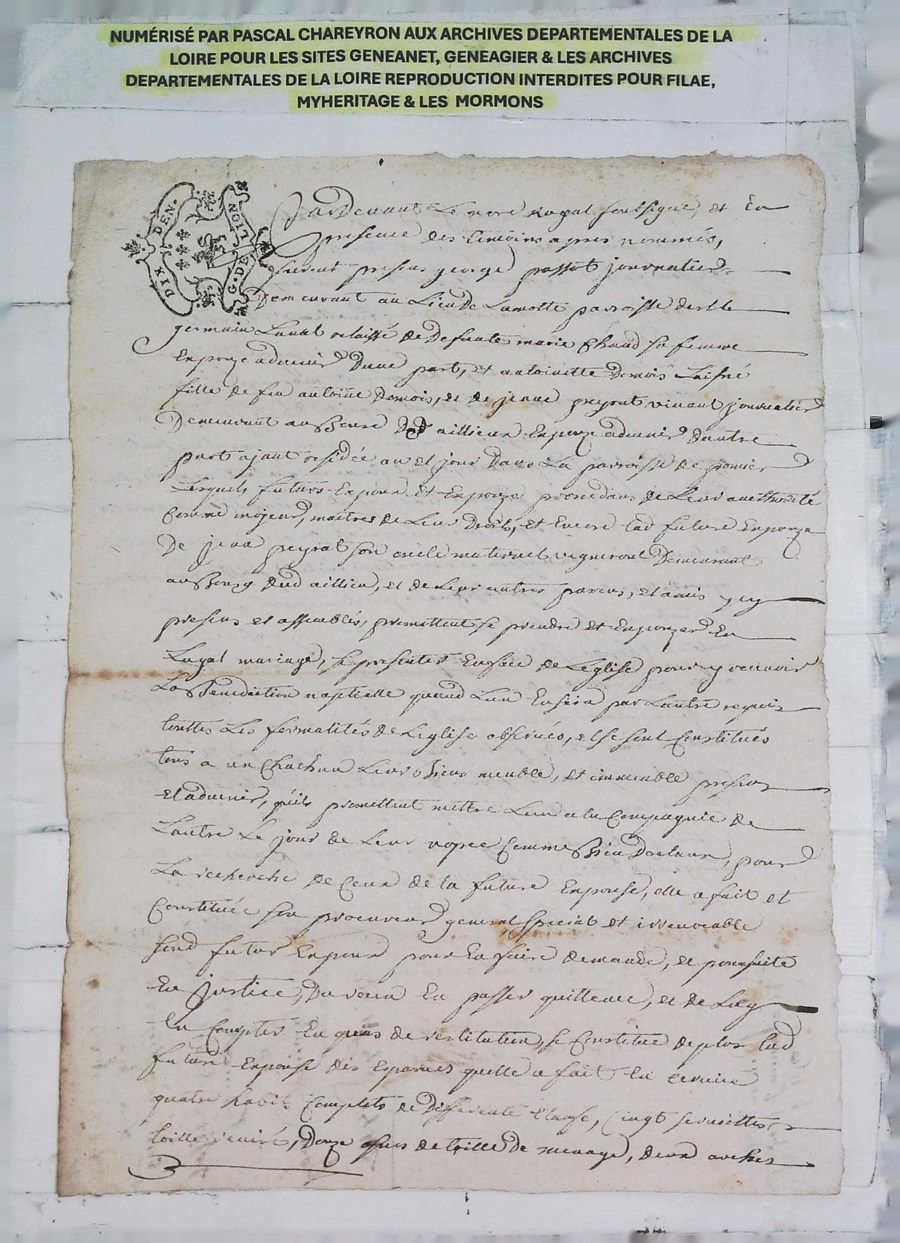 NUMÉRISÉ PAR PASCAL CHAREYRON AUX ARCHIVES DEPARTEMENTALES DE LA
LOIRE POUR LES SITES GENEANET, GENEAGIER & LES ARCHIVES
DEPARTEMENTALES DE LA LOIRE REPRODUCTION INTERDITES POUR FILAE,
MYHERITAGE & LES MORMONS
DIX DEN.
G. DE LION
Pardevant Le nore Royal soubsigné, et En
presence des temoins apres nommés,
furent presens george passot journalier
Demeurant au Lieu De Lamotte parroisse de
germain Laval relaissé de Defunte marie Chaud sa femme
Enpoux advenir Dune part, et antoinette Damois Laisné
fille de feu antoine Damois, et de jeane peyrot vivant journalier
Demeurant au Bourg Daillieu Enpouze advenir Dautre
part ajant residée au et jour Dans La parroisse de pomier
Lesquels futurs Enpoux et Enpouze procedans de Leur authorité
Comme majeurs, maitres de Leur Droits, et Encore lad future Enpouze
De jean peyrot son oncle maternel vigneron Demeurant
au Bourg dud aillieu, et de Leur autres parens, et amis y
presens et assemblés, promettent se prendre et Enpouzer En
Legal mariage, se presenter En face de Leglise pour y recevoir
La Benediction naptielle quand Lun En sera par Lautre requis
touttes Les formalités de Leglise observées, et se sont Constitués
tous a un Chachun Leurs Biens meuble, et immeuble presens
et advenir, quils promettent mettre Lun a la Compagnie de
Lautre Le jour de Leur nopce Comme Bien Doctaux, pour
La recherche De Ceux de la future Enpouse, elle a fait et
Constituée son procureur general special et irrevocable
sond futur Enpoux pour En faire demande, et poursuite
En justice, Du receu En passer quittance, et de Luy
En Compter En quas de restitution, se Constitue de plus lad
future Enpouse des Eparnes quelle a fait En service
quatre habit Complets de Differente Etause, Cingt serviettes
toille, Douze de toille De menage, deux arches